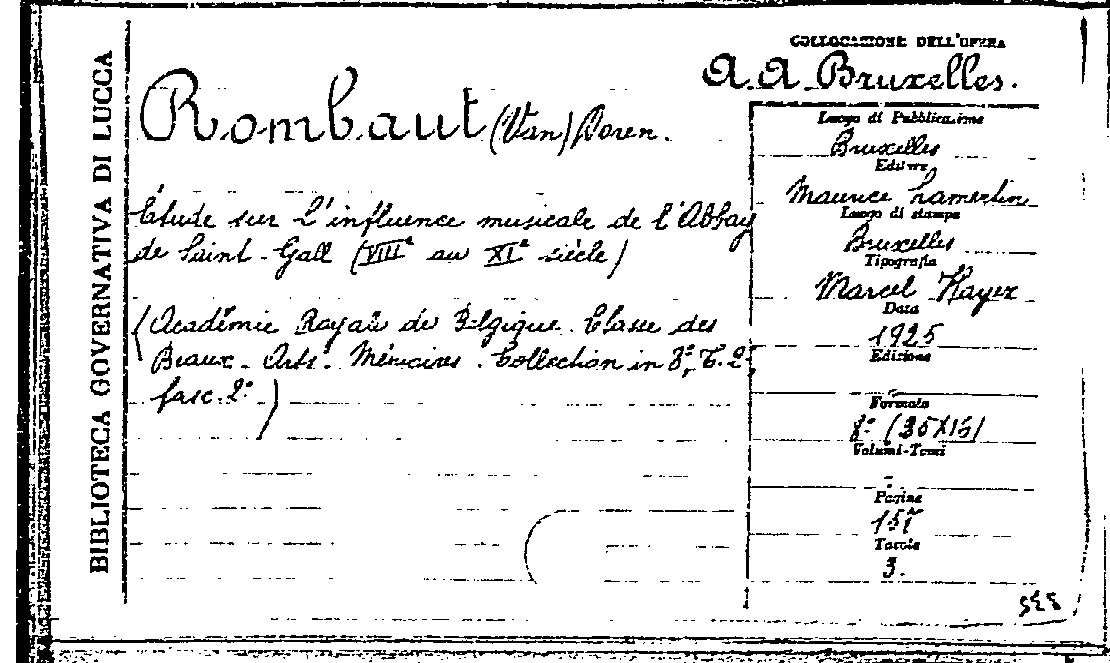 BIBLIOTECA GOVERNATIVA DI LUCCA
COLLOCAZIONE DELL'OPERA
A. A. Bruxelles.
Rombaut (Van) Doren.
Étude sur l'influence musicale de l'Abbay
de Saint-Gall (VIIIe au XIe siècle)
(Académie Royale de Belgique. Classe des
Beaux-Arts. Mémoires. Collection in 8º, T. 2º,
fasc. 2º)
Luogo di Pubblicazione
Bruxelles
Editore
Maurice Lamertin
Luogo di stampa
Bruxelles
Tipografia
Marcel Hayez
Data
1925
Edizione
Formato
8º (25X16)
Volumi-Tomi
-
Pagine
151
Tavole
3.